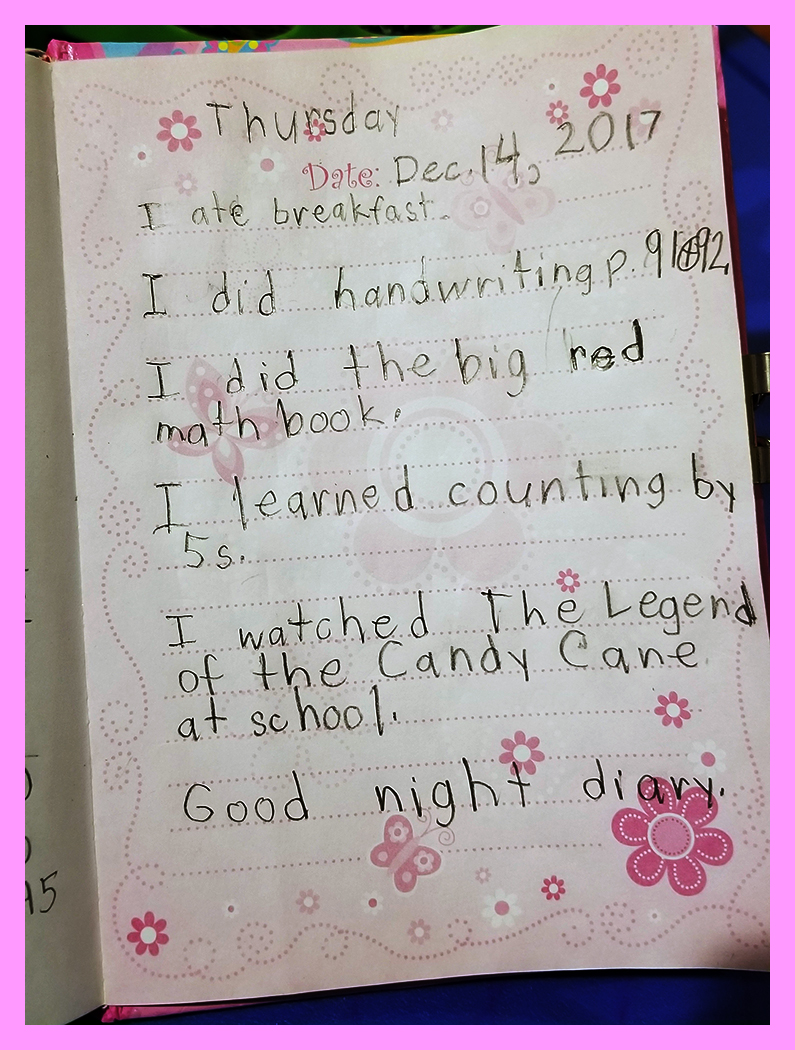 Thursday
Date: Dec. 14, 2017
I ate breakfast.
I did handwriting p. 91&92
I did the big red
math book.
I learned counting by
5s.
I watched The Legend
of the Candy Cane
at school.
Good night diary.